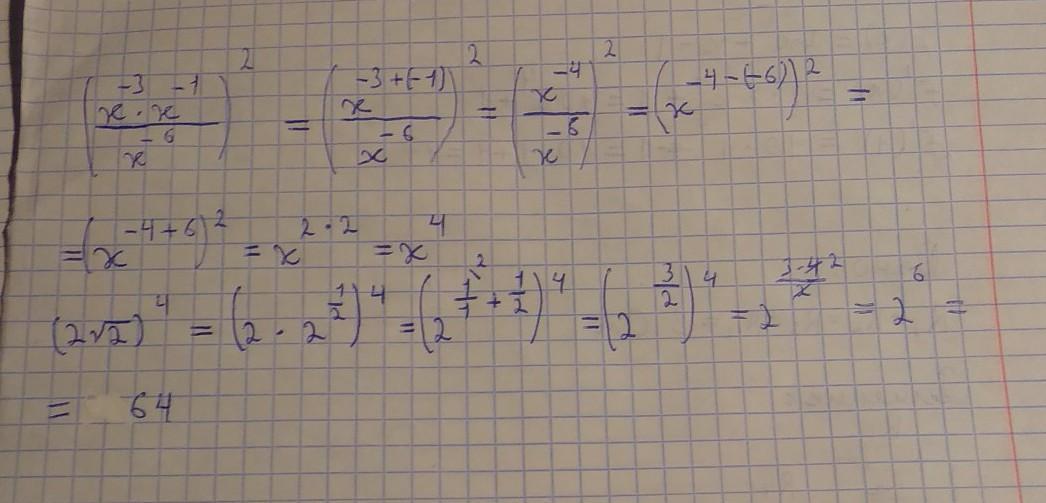 (x⁻³·x⁻¹/x⁻⁶)² = (x⁻³⁺⁽⁻¹⁾/x⁻⁶)² = (x⁻⁴/x⁻⁶)² = (x⁻⁴⁻⁽⁻⁶⁾)² =
= (x⁻⁴⁺⁶)² = x^(2·2) = x⁴
(2√2)⁴ = (2·2^(1/2))⁴ = (2^(1/1\2 + 1/2))⁴ = (2^(3/2))⁴ = 2^(3·4 2/2) = 2⁶ =
= 64